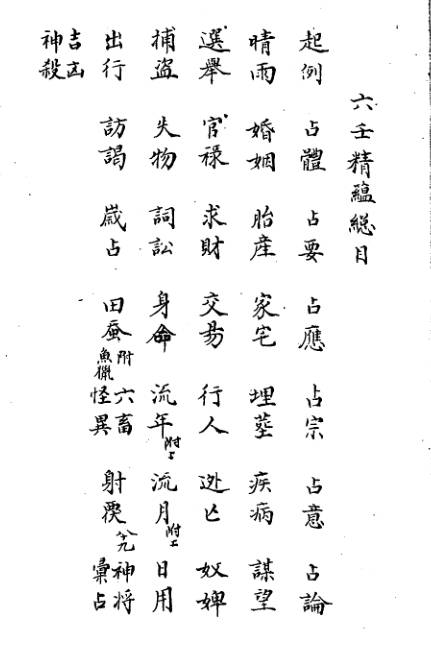 六壬精蘊總目
起例 占體 占要 占應 占宗 占意 占論
晴雨 婚姻 胎産 家宅 埋塟 疾病 謀望
選舉 官祿 求財 交易 行人 逃亡 奴婢
捕盜 失物 詞訟 身命 流年附上 流月附上 日用
出行 訪謁 歲占 田蚕附魚獵 六畜怪異 射覆 神将彙占
吉凶神殺